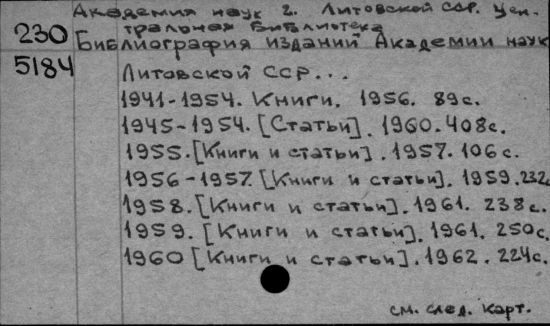 Академия наук 2. Литовской ССР. Цен-
тральная Библиотека
230 Библиография изданий Академии наук
5184 Литовской ССР...
1941-1954. Книги. 1956. 89с.
1945-1954. [Статьи]. 1960. 408с.
1955. [Книги и статьи]. 1957. 106с.
1956-1957. [Книги и статьи]. 1959. 232с
1958. [Книги и статьи]. 1961. 238с.
1959. [Книги и статьи]. 1961. 250с.
1960 [Книги и статьи]. 1962. 224с.
см. след. карт.